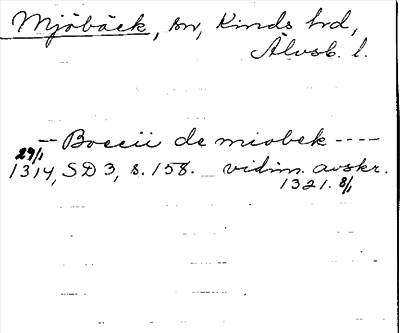 Mjöbäck, sn, Kinds hrd,
Älvsb. l.
-- Boecii de miobek ----
29/1
1314, SD 3, s. 158. vidim. avskr.
1321. 8/1